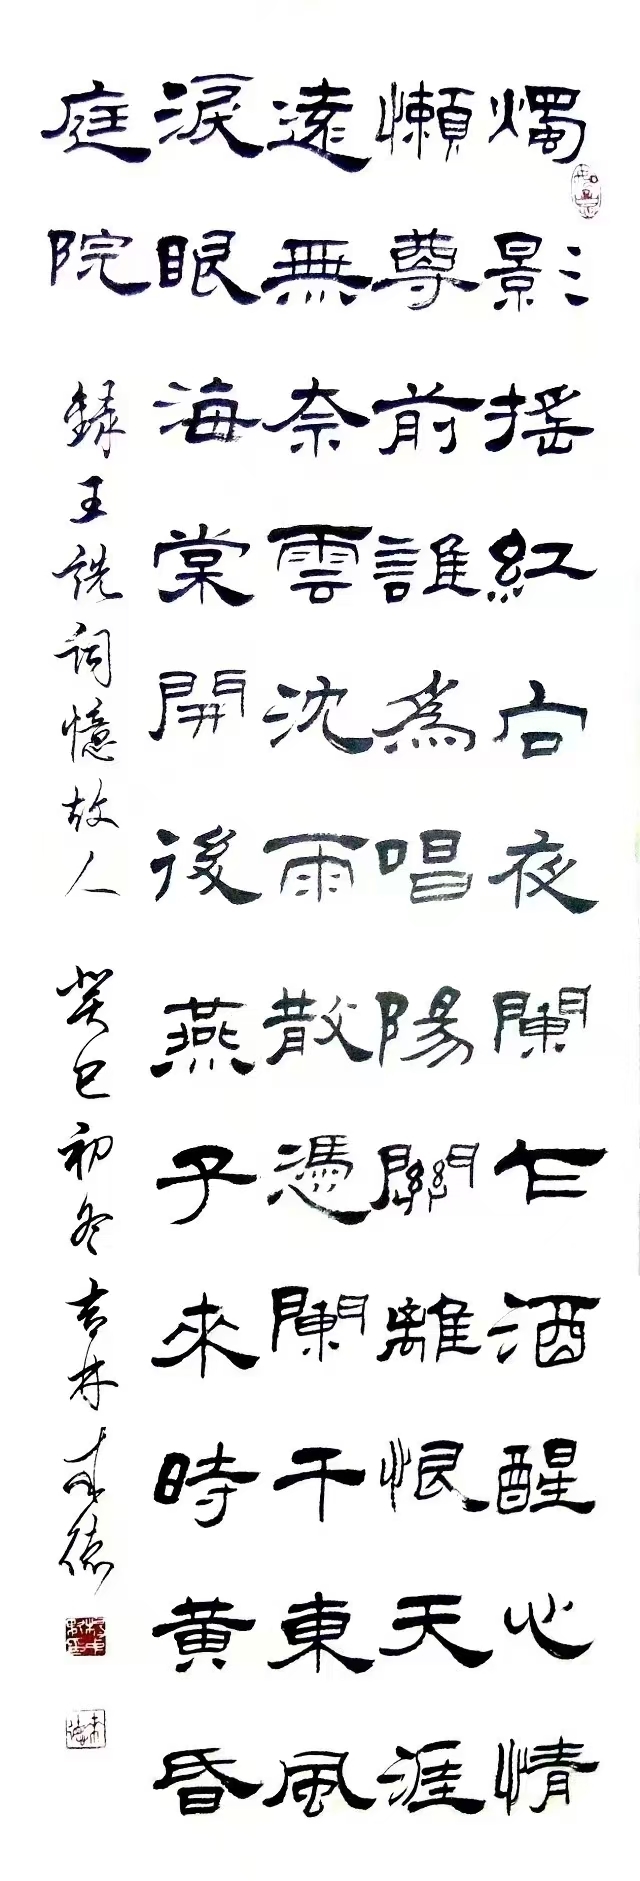 燭影搖紅向夜闌乍酒醒心情
懶尊前誰為唱陽關離恨天涯
遠無奈雲沈雨散憑闌干東風
淚眼海棠開後燕子來時黃昏
庭院
錄王詵詞憶故人 癸巳初冬吉林